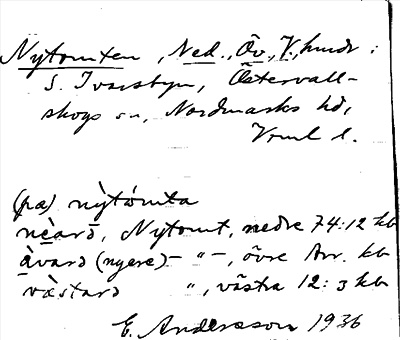 Nytomten, Ned., Öv., V., hmdr i
S. Ivarsbyn, Östervall-
skogs sn, Nordmarks hd,
Vrml l.
(pa) nỳtómta
nearə, Nytomt, nedre 74:12 kb
àvarə (nyere) – " –, övre Avr. kb
vàstarə ", västra 12:3 kb
E. Andersson 1936